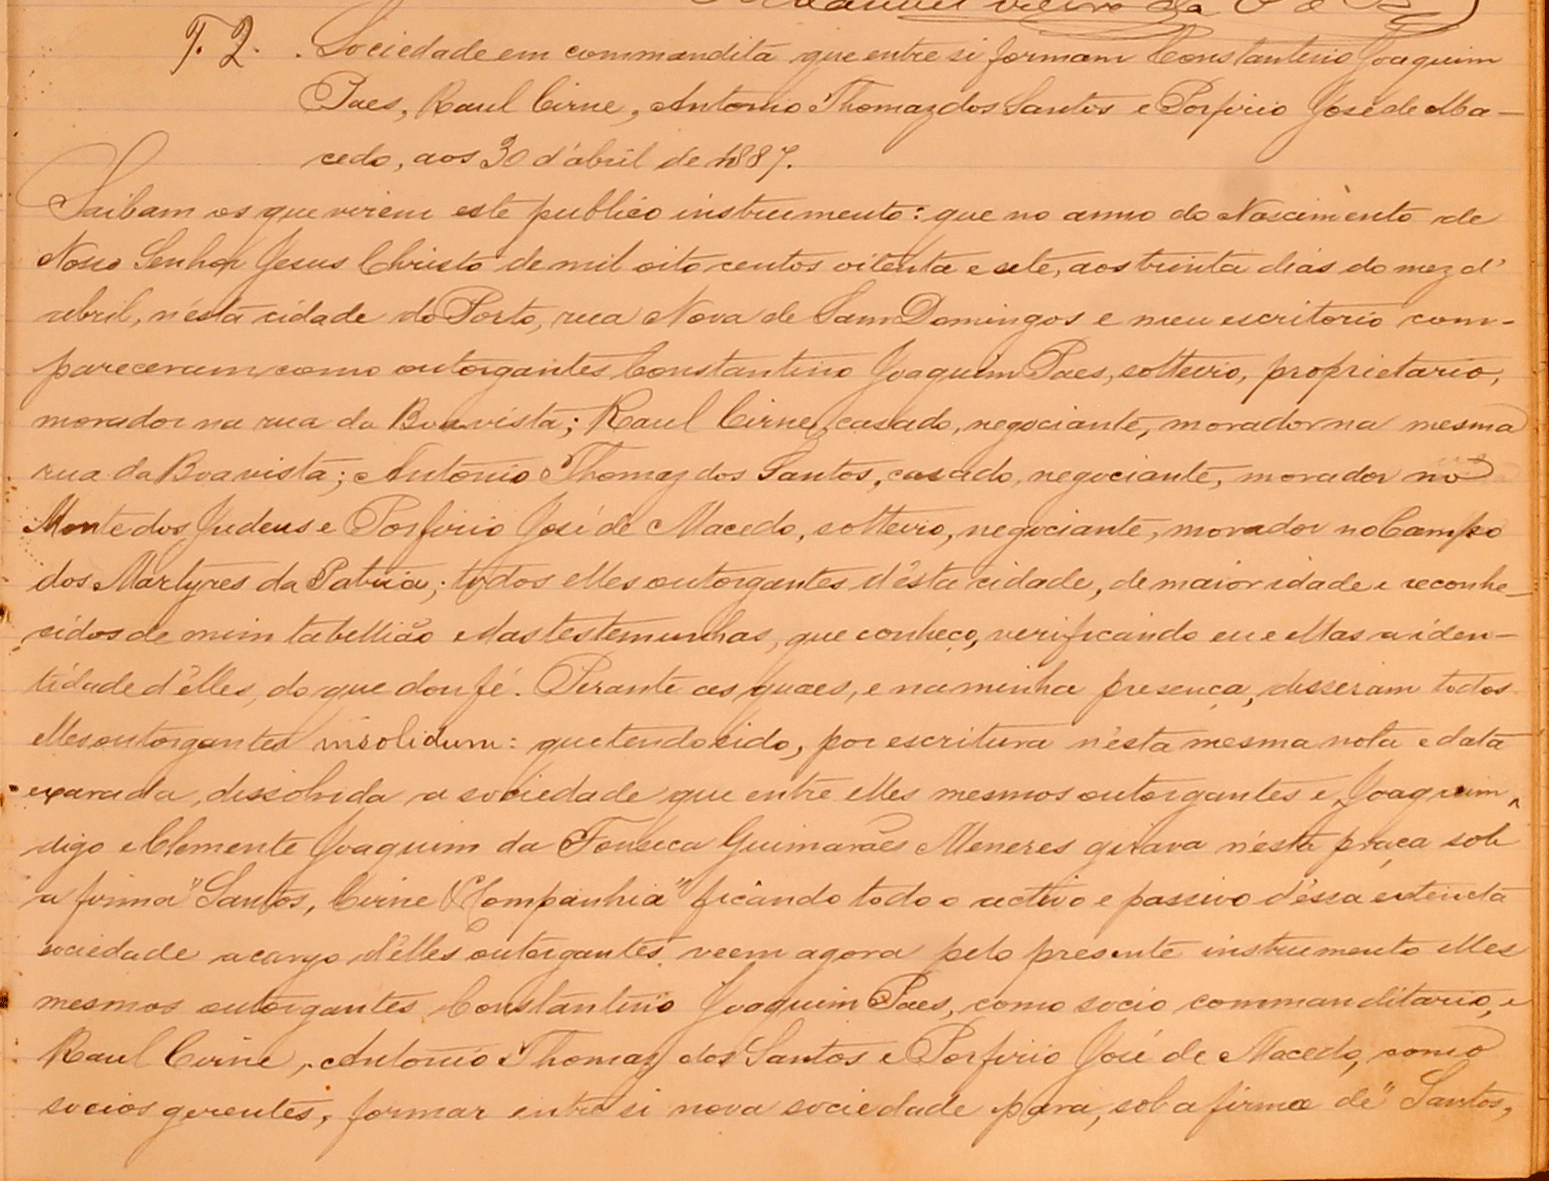 Manuel Vieira da
T. 2. Sociedade em commandita que entre si formam Constantino Joaquim
Paes, Raul Cirne, Antonio Thomaz dos Santos e Porfirio José de Ma-
cedo, aos 30 d'abril de 1887.
Saibam os que virem este publico instrumento: que no anno do Nascimento de
Nosso Senhor Jesus Christo de mil oito centos oitenta e sete, aos trinta dias do mez d'
abril, n'esta cidade do Porto, rua Nova de Sam Domingos e meu escritorio com-
pareceram como outorgantes Constantino Joaquim Paes, solteiro, proprietario,
morador na rua da Boavista; Raul Cirne, casado, negociante, morador na mesma
rua da Boavista; Antonio Thomaz dos Santos, casado, negociante, morador no
Monte dos Judeus e Porfirio José de Macedo, solteiro, negociante, morador no Campo
dos Martyres da Patria; todos elles outorgantes d'esta cidade, de maior idade e reconhe-
cidos de mim tabellião e das testemunhas, que conheço, verificando eu e ellas a iden-
tidade d'elles, do que dou fé. Perante as quaes, e na minha presença, disseram todos
elles outorgantes insolidum: que tendo sido, por escritura n'esta mesma nota e data
exarada, dissolvida a sociedade que entre elles mesmos outorgantes e Joaquim,
digo e Clemente Joaquim da Fonseca Guimarães Meneres girava n'esta praça sob
a firma "Santos, Cirne & Companhia" ficando todo o activo e passivo d'essa extincta
sociedade a cargo d'elles outorgantes, veem agora pelo presente instrumento elles
mesmos outorgantes Constantino Joaquim Paes, como socio commanditario, e
Raul Cirne, Antonio Thomaz dos Santos e Porfirio José de Macedo, como
socios gerentes, formar entre si nova sociedade para, sob a firma de "Santos,